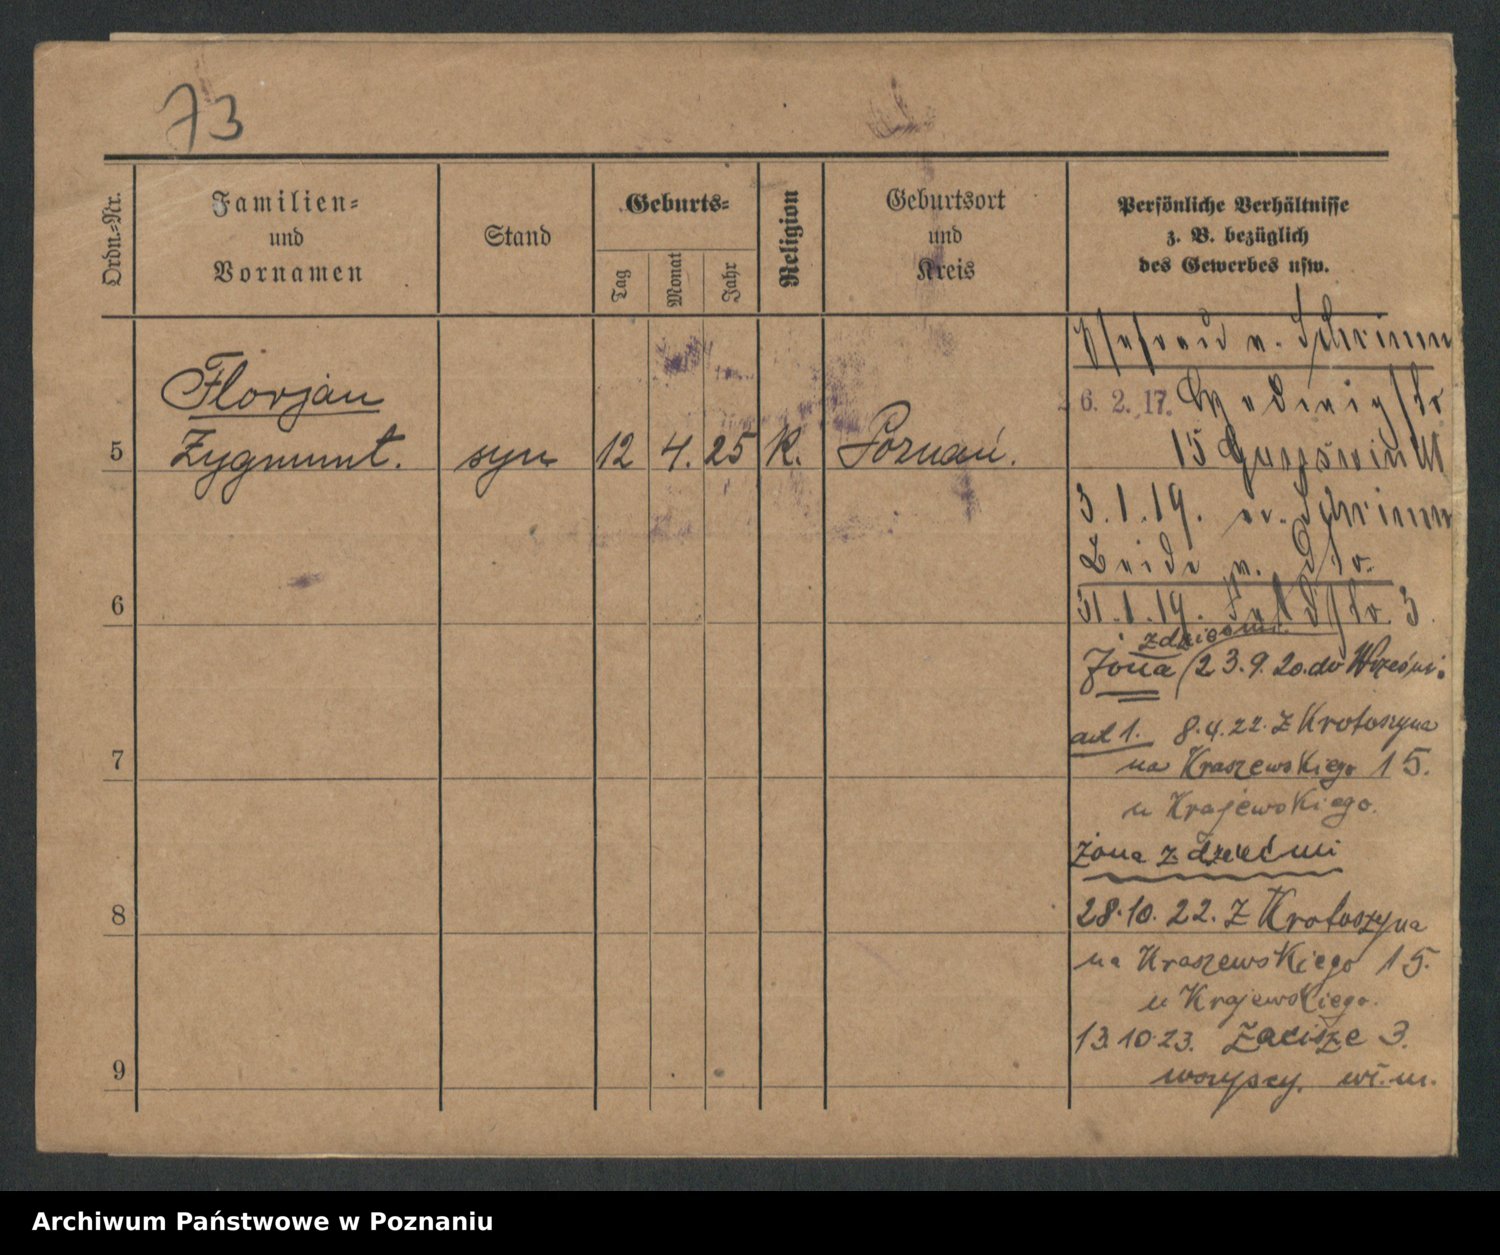 73
Ordn.-Nr.
Familien-
und
Vornamen
Stand
Geburts-
Tag
Monat
Jahr
Religion
Geburtsort
und
Kreis
Persönliche Verhältnisse
z. B. bezüglich
des Gewerbes usw.
Florjan
5 Zygmunt. syn 12 4. 25 k. Poznań.
6
7
8
9
v. Schrimm
26. 2. 17.
15
3. 1. 19. Schrimm
Beide v.
31. 1. 19. 3
z dziećmi
Żona 23.9.20. do Wrześni.
ad 1. 8.4.22. z Krotoszyna
na Kraszewskiego 15.
u Krajewskiego.
żona z dziećmi
28.10.22. z Krotoszyna
na Kraszewskiego 15.
u Krajewskiego.
13.10.23. Zacisze 3.
wszyscy. wł. m.
Archiwum Państwowe w Poznaniu